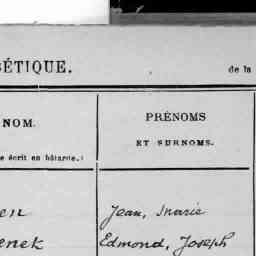 BÉTIQUE. de la
NOM. PRÉNOMS
ET SURNOMS.
e écrit en bâtarde.)
en Jean, Marie
enek Edmond, Joseph